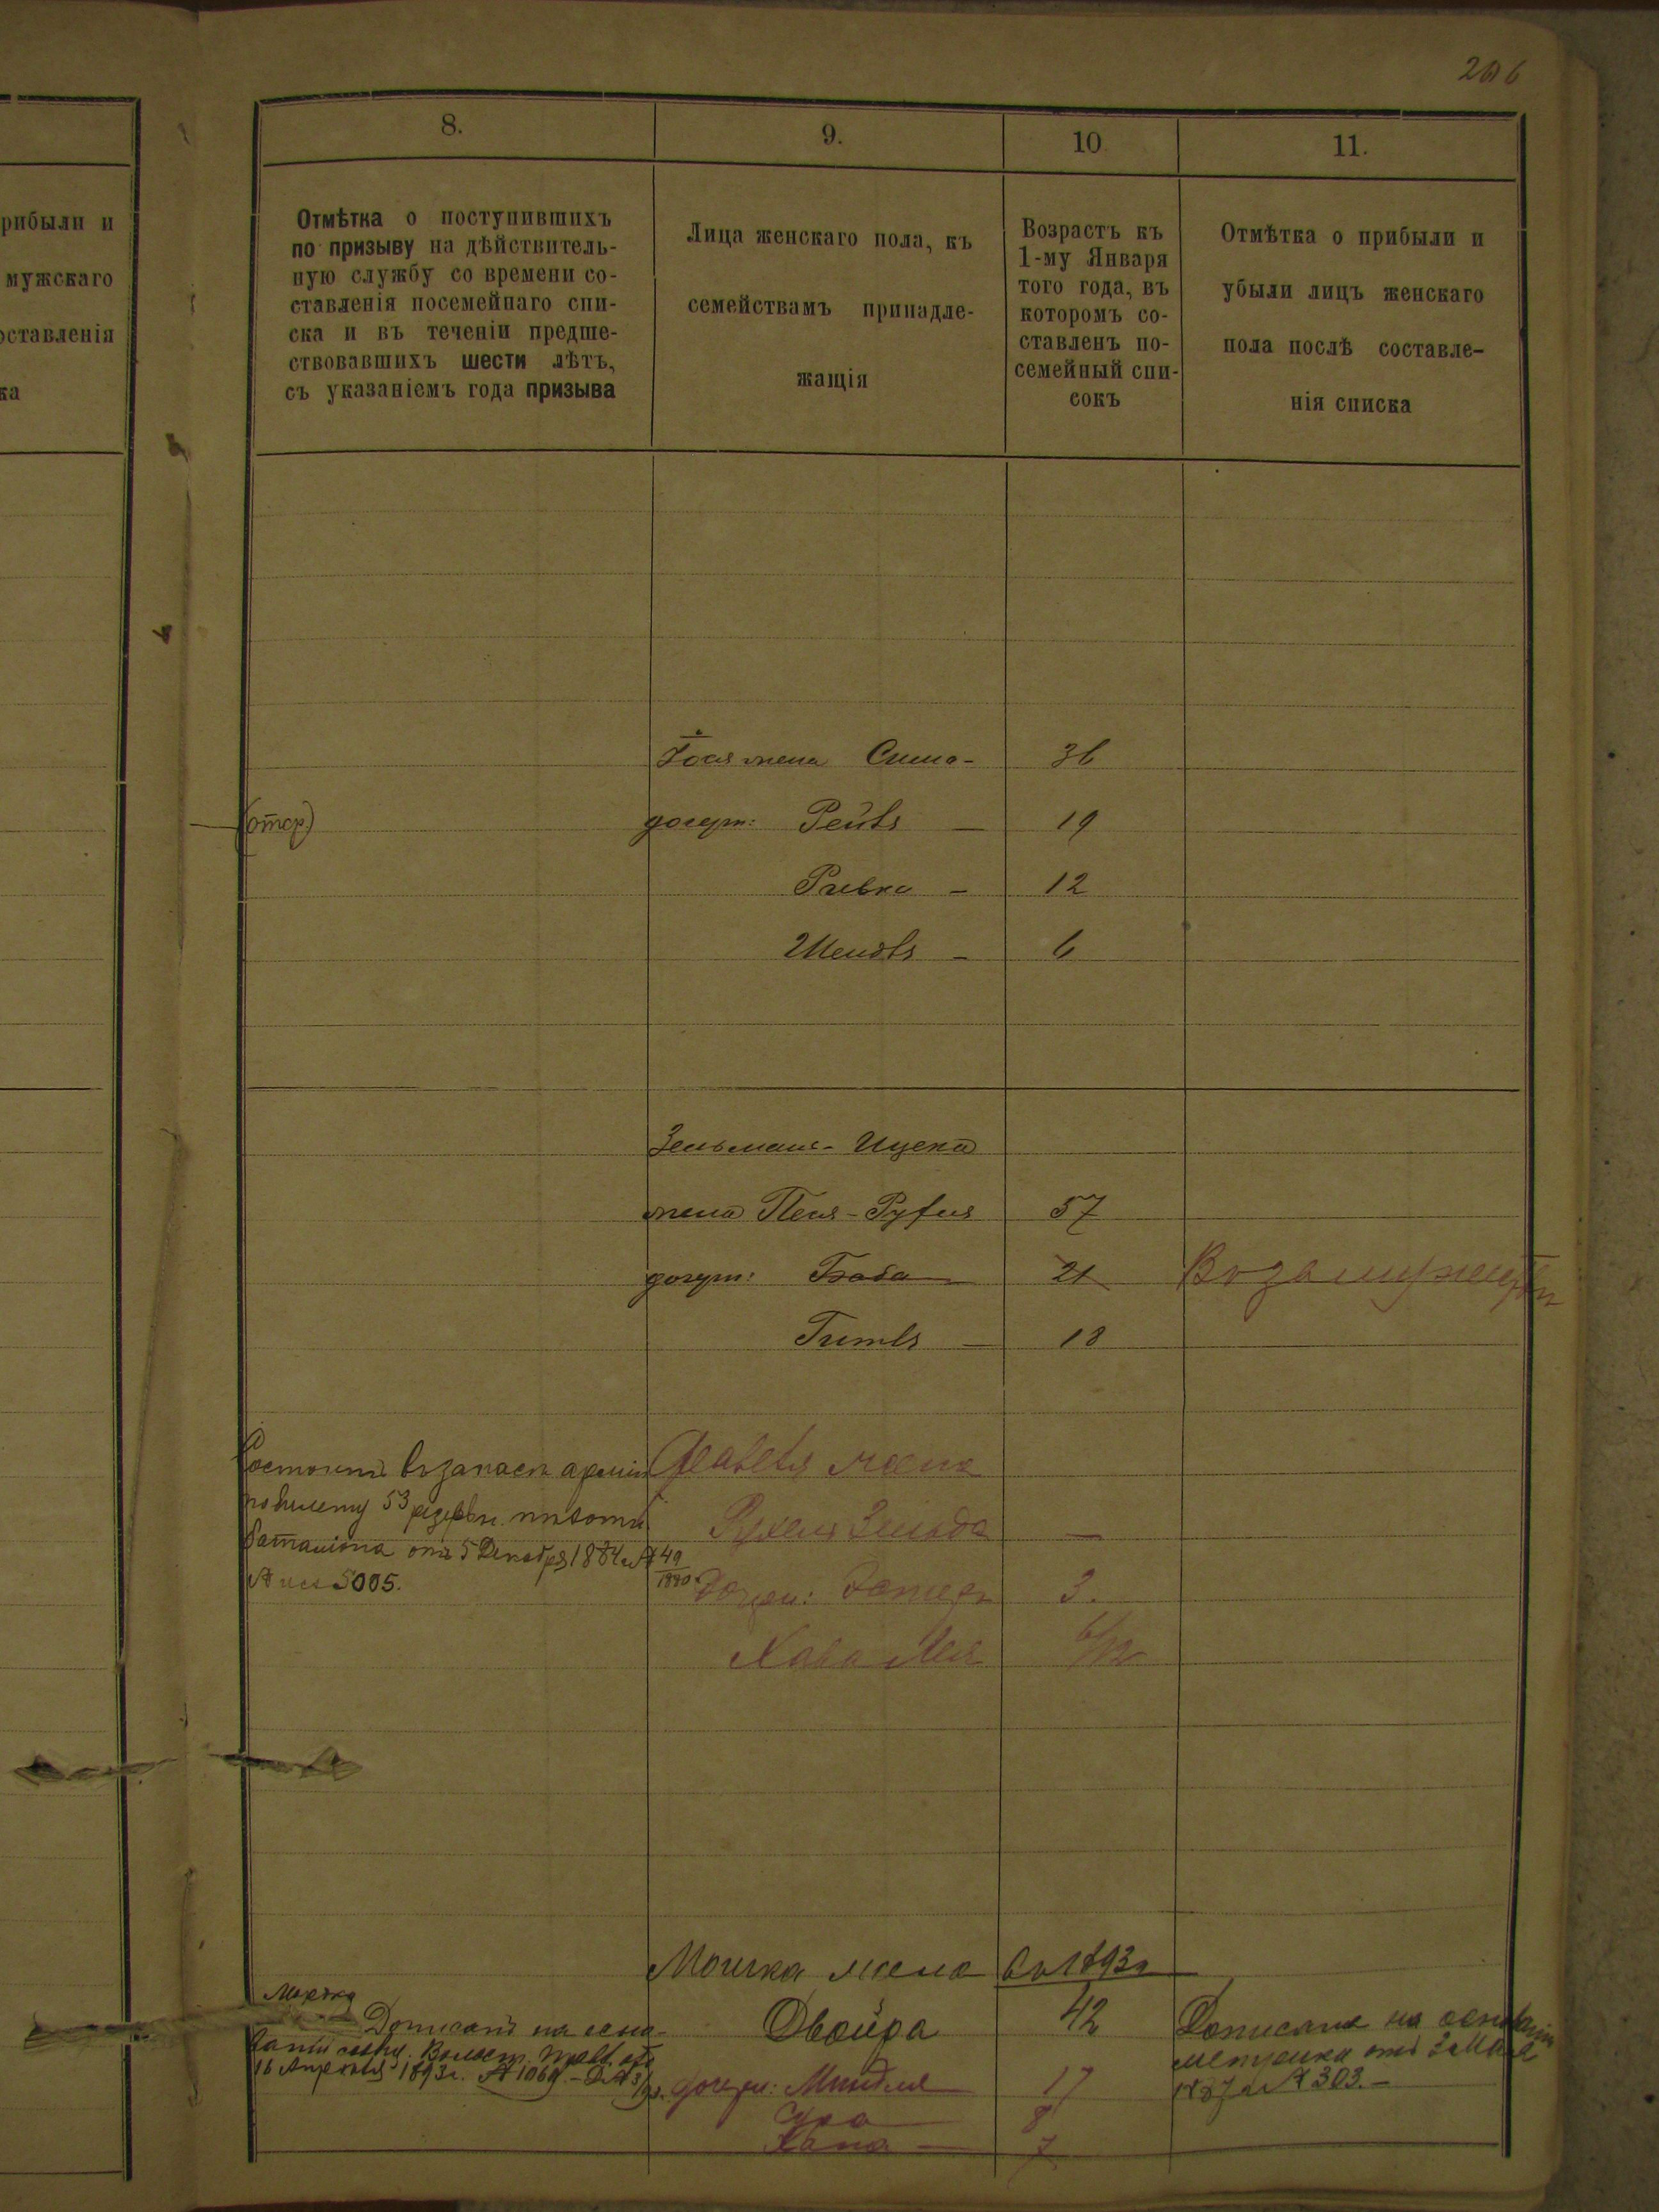 206
8.
9.
10
11.
рибыли и
мужскаго
оставленія
ка
Отмѣтка о поступившихъ
по призыву на дѣйствитель-
ную службу со времени со-
ставленія посемейнаго спи-
ска и въ теченіи предше-
ствовавшихъ шести лѣтъ,
съ указаніемъ года призыва
Лица женскаго пола, къ
семействамъ принадле-
жащія
Возрастъ къ
1-му Января
того года, въ
которомъ со-
ставленъ по-
семейный спи-
сокъ
Отмѣтка о прибыли и
убыли лицъ женскаго
пола послѣ составле-
нія списка
жена Сима - 36
(отср.) дочери: Рейзя — 19
Ривка - 12
6
Зельмана - Ицека
жена Песя - 57
дочери: Баба 21 Въ замужествѣ
Гитля — 18
Состоитъ въ запасѣ арміи жена
по билету 53 резервн. пѣхотн.
баталіона отъ 5 Декабря 1884 г. № 49
5005. 1890
Рухля Зельда —
Дочери: Эстеръ 3.
Хава Лея 6/12
Мошка жена въ 1893 г
Дописанъ на осно-
ваніи Волост. Правл. отъ
16 Апрѣля 1893 г. № 1069. - Д. № 3/93.
Двойра 42
Дописаны на основаніи
отъ 3 Мая
1887 г № 303. -
дочери: Миндля 17
Сура 8
Хана — 7